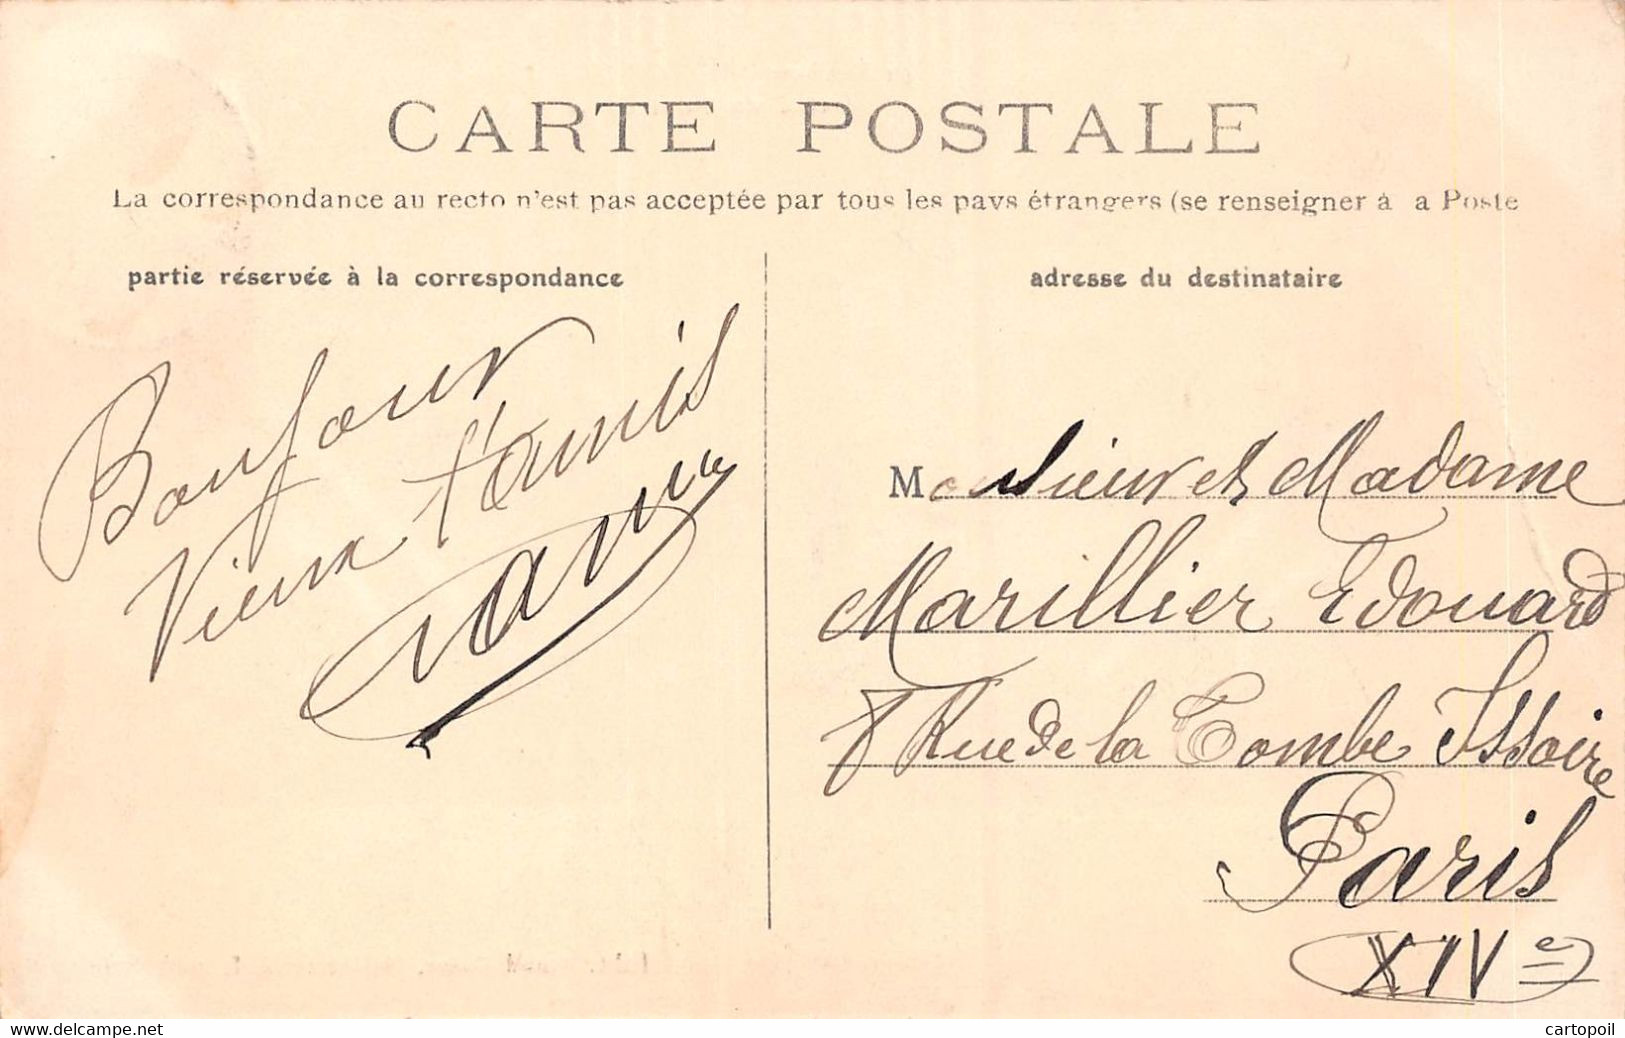 CARTE POSTALE
La correspondance au recto n'est pas acceptée par tous les pays étrangers (se renseigner à a Poste
partie réservée à la correspondance
adresse du destinataire
Bonjour
Vieux t'amis
Monsieur et Madame
Marillier Edouard
8 Rue de la Tombe Issoire
Paris
XIVe
www.delcampe.net
cartopoil